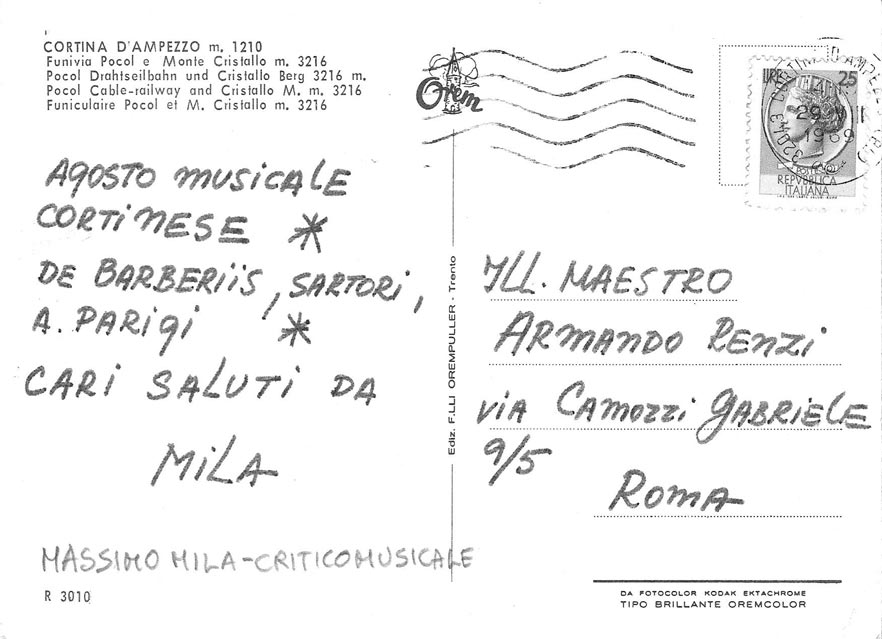 CORTINA D'AMPEZZO m. 1210
Funivia Pocol e Monte Cristallo m. 3216
Pocol Drahtseilbahn und Cristallo Berg 3216 m.
Pocol Cable-railway and Cristallo M. m. 3216
Funiculaire Pocol et M. Cristallo m. 3216
AGOSTO MUSICALE
CORTINESE *
DE BARBERIIS, SARTORI,
A. PARIGI *
CARI SALUTI DA
MILA
MASSIMO MILA-CRITICO MUSICALE
R 3010
Ediz. F.LLI OREMPULLER - Trento
Orem
LIRE 25
32043 CORTINA D'AMPEZZO
29
1969
POSTE
REPVBBLICA
ITALIANA
ILL. MAESTRO
ARMANDO RENZI
VIA CAMOZZI GABRIELE
9/5
ROMA
DA FOTOCOLOR KODAK EKTACHROME
TIPO BRILLANTE OREMCOLOR